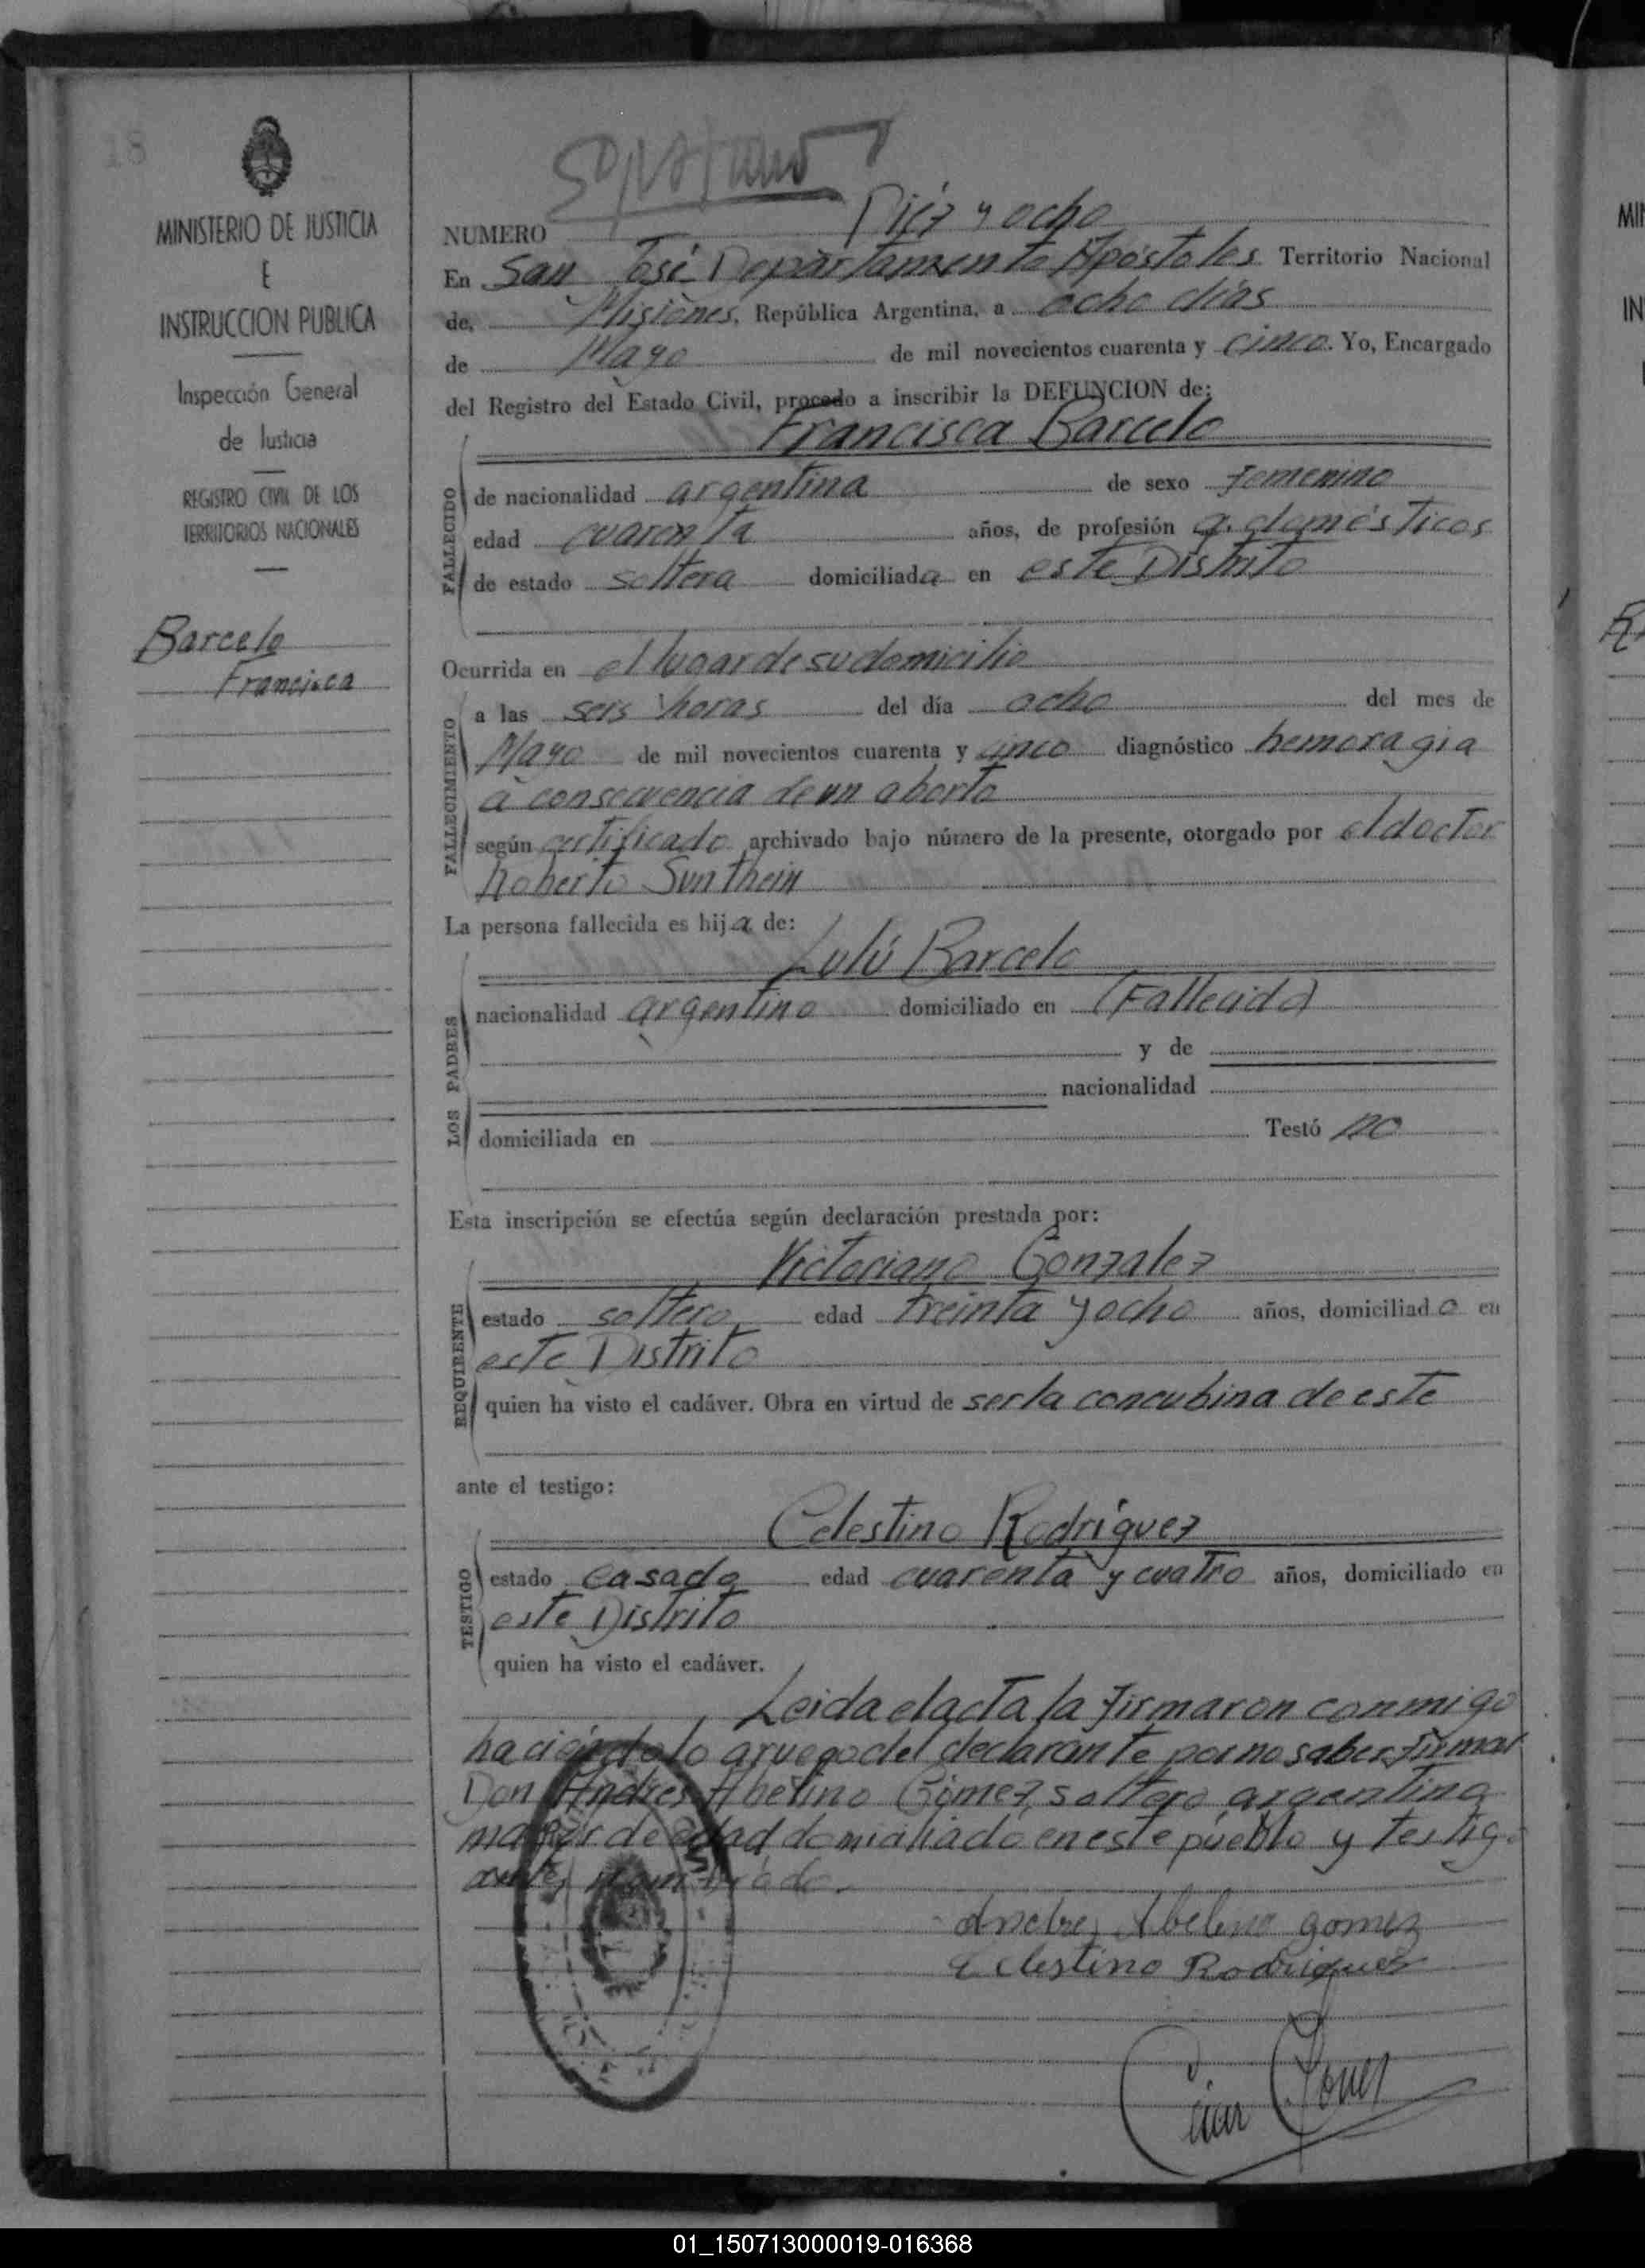 18
MINISTERIO DE JUSTICIA
E
INSTRUCCION PUBLICA
Inspección General
de Justicia
REGISTRO CIVIL DE LOS
TERRITORIOS NACIONALES
Barcelo
Francisca
NUMERO Diez y ocho
En San José Departamento Apóstoles Territorio Nacional
de, Misiones, República Argentina, a ocho días
de Mayo de mil novecientos cuarenta y cinco. Yo, Encargado
del Registro del Estado Civil, procedo a inscribir la DEFUNCION de:
Francisca Barcelo
FALLECIDO
de nacionalidad argentina de sexo femenino
edad cuarenta años, de profesión q. domésticos
de estado soltera domiciliada en este Distrito
Ocurrida en el lugar de su domicilio
FALLECIMIENTO
a las seis horas del día ocho del mes de
Mayo de mil novecientos cuarenta y cinco diagnóstico hemoragia
a consecuencia de un aborto
según certificado archivado bajo número de la presente, otorgado por el doctor
Roberto Sunthein
La persona fallecida es hija de:
Lulú Barcelo
LOS PADRES
nacionalidad argentino domiciliado en (Fallecido)
y de
nacionalidad
domiciliada en Testó no
Esta inscripción se efectúa según declaración prestada por:
Victoriano Gonzalez
REQUIRENTE
estado soltero edad treinta y ocho años, domiciliado en
este Distrito
quien ha visto el cadáver. Obra en virtud de ser la concubina de este
ante el testigo:
Celestino Rodríguez
TESTIGO
estado casado edad cuarenta y cuatro años, domiciliado en
este Distrito
quien ha visto el cadáver.
Leida el acta la firmaron conmigo
haciéndolo a ruego del declarante por no saber firmar
Don Andres Abelino Gómez, soltero argentino
mayor de edad domiciliado en este pueblo y testigo
antes nombrado.
Andres Abelino gomez
Celestino Rodriguez
01_150713000019-016368